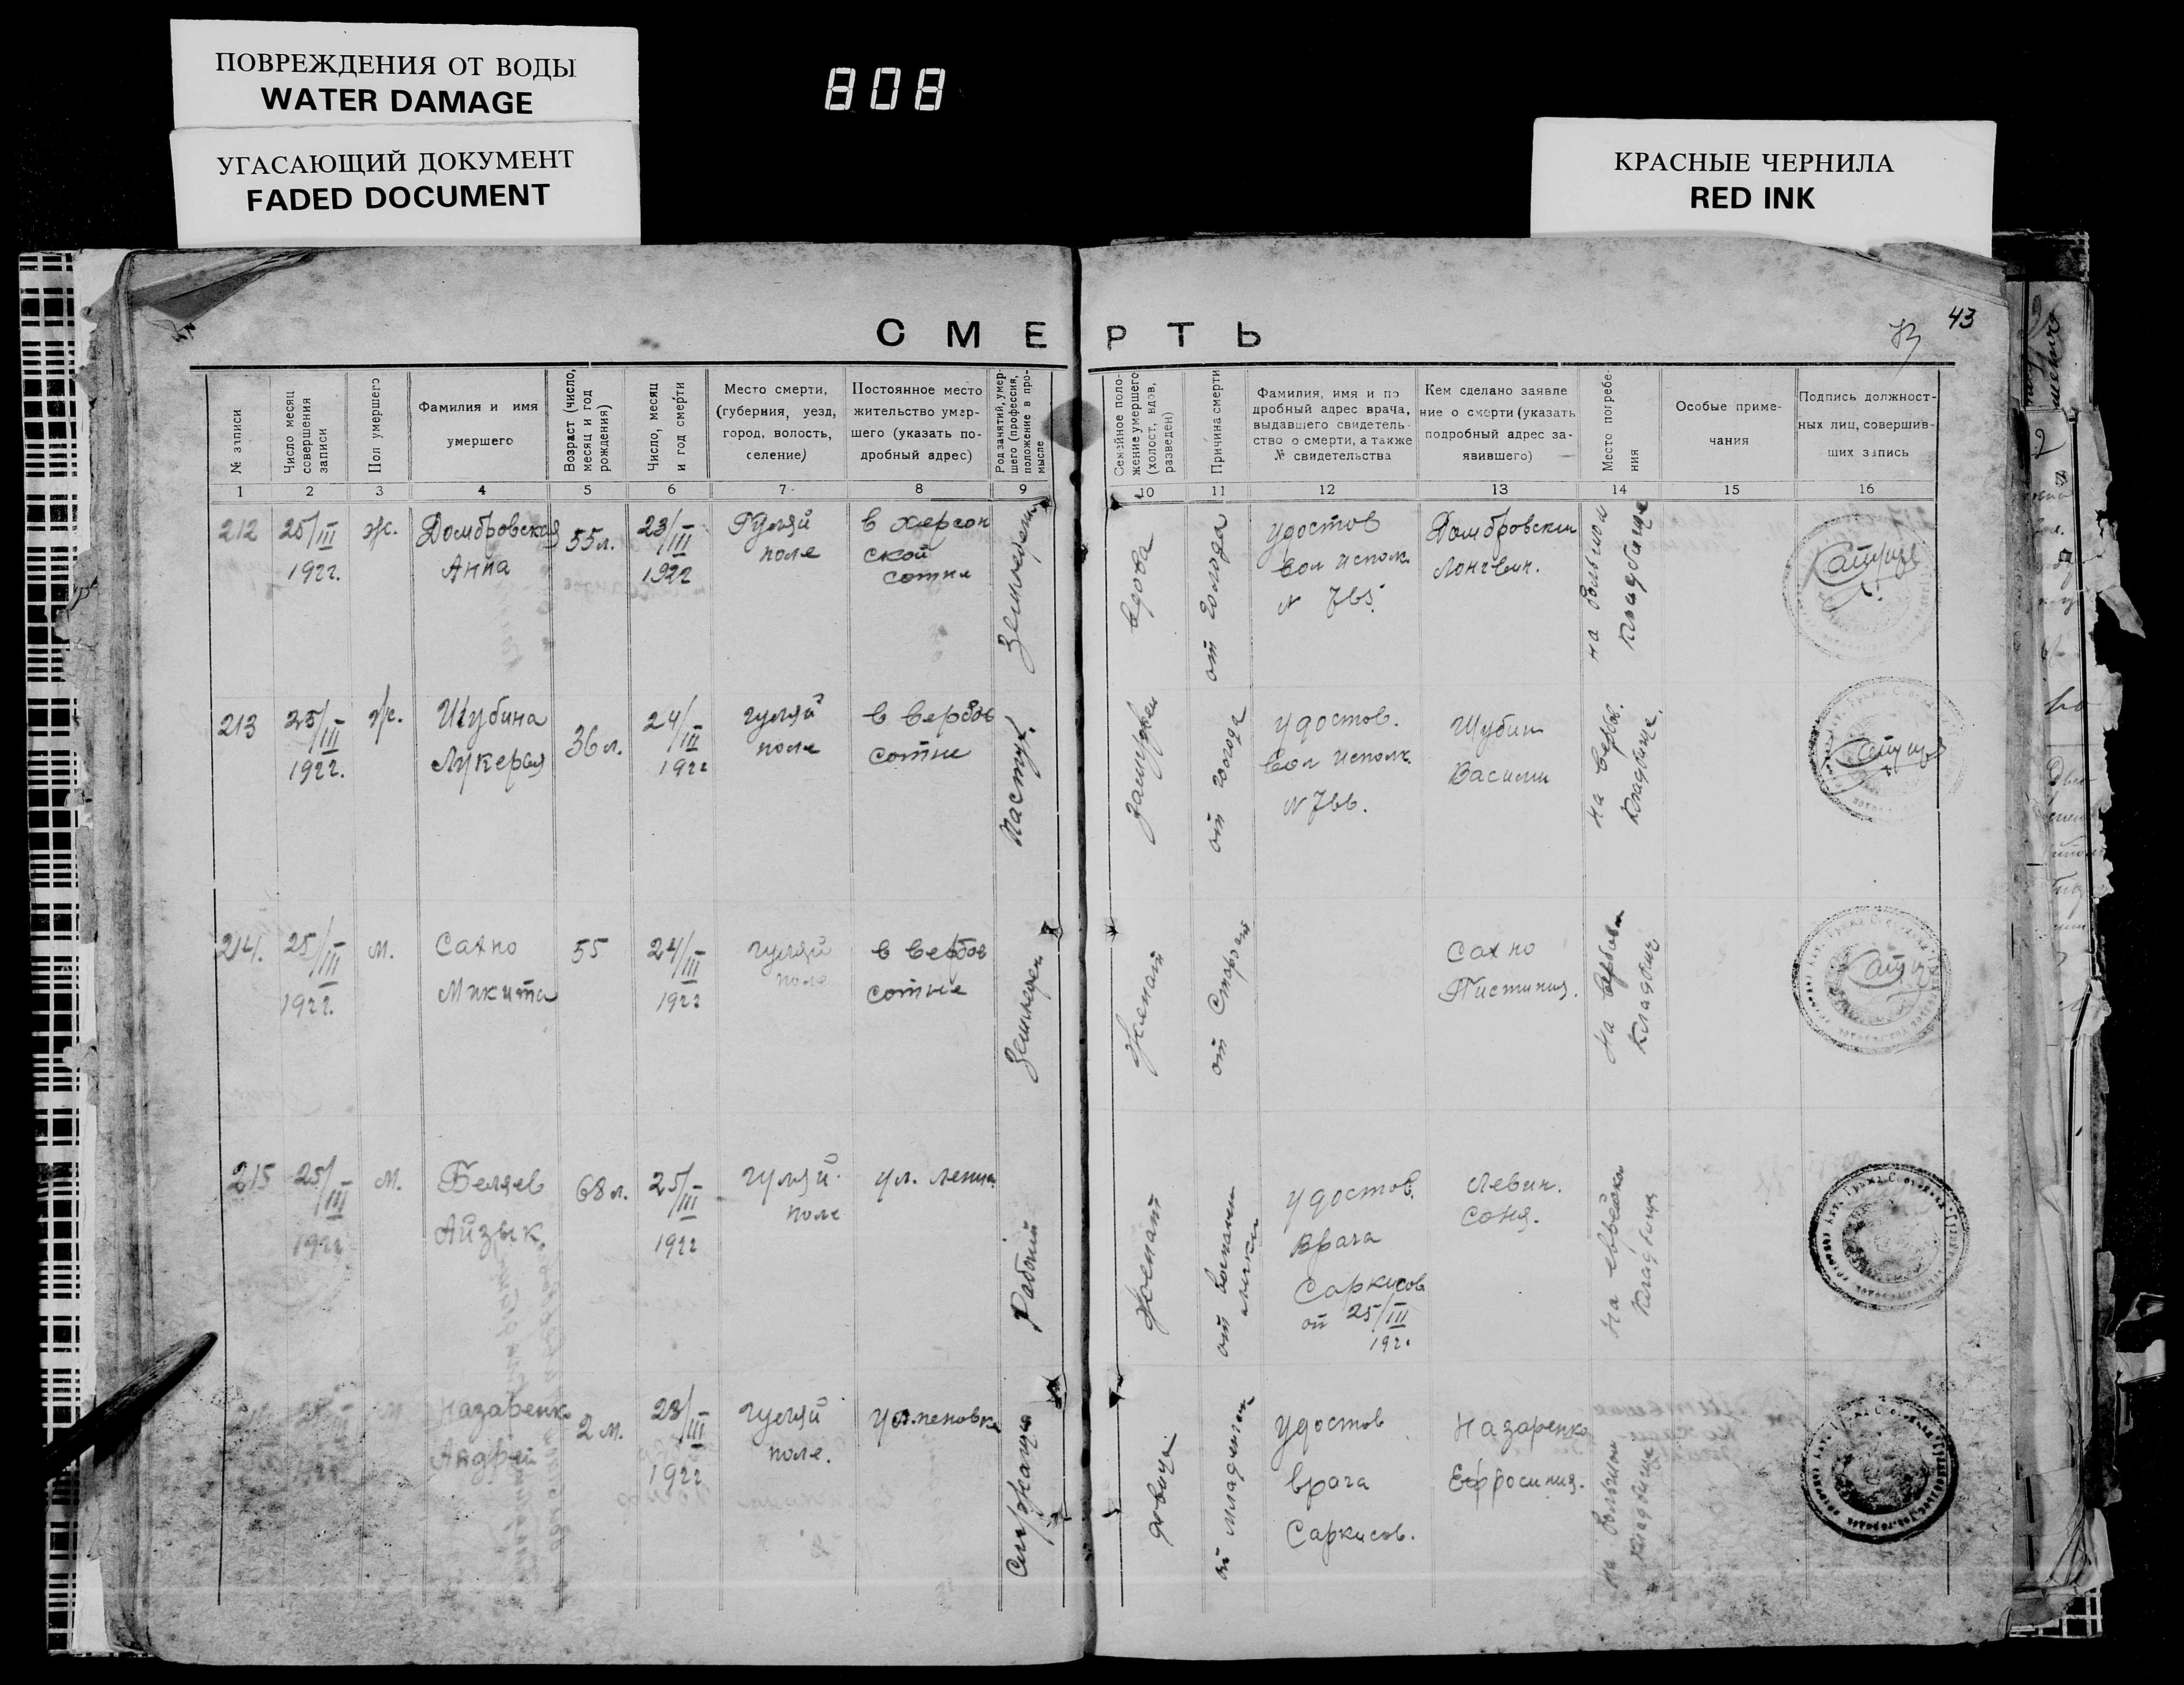 ПОВРЕЖДЕНИЯ ОТ ВОДЫ
WATER DAMAGE
УГАСАЮЩИЙ ДОКУМЕНТ
FADED DOCUMENT
808
КРАСНЫЕ ЧЕРНИЛА
RED INK
43
СМЕРТЬ
№ записи
Число месяц
совершения
записи
Пол умершего
Фамилия и имя
умершего
Возраст (число,
месяц и год
рождения)
Число, месяц
и год смерти
Место смерти,
(губерния, уезд,
город, волость,
селение)
Постоянное место
жительство умер-
шего (указать по-
дробный адрес)
Род занятий, умер-
шего (профессия,
положение в про-
мысле
Семейное поло-
жение умершего
(холост, вдов,
разведен)
Причина смерти
Фамилия, имя и по
дробный адрес врача,
выдавшего свидетель-
ство о смерти, а также
№ свидетельства
Кем сделано заявле
ние о смерти (указать
подробный адрес за-
явившего)
Место погребе-
ния
Особые приме-
чания
Подпись должност-
ных лиц, совершив-
ших запись
1 2 3 4 5 6 7 8 9 10 11 12 13 14 15 16
212
25/III
1922.
ж.
Домбровская
Анна
55 л.
23/III
1922
Гуляй
поле
в херсон
ской
сотни
вдова
от голода
удостов
вол исполк.
N 765
Домбровски
на большом
кладбище
213
25/III
1922.
ж.
Шубина
Лукерья
36 л.
24/III
1922
гуляй
поле
в вербов
сотни
Пастух.
замужем
от голода
удостов.
вол исполк.
N 766.
Шубин
Васили
на вербов.
кладбище.
214.
25/III
1922.
м.
Сахно
Микита
55
24/III
1922
гуляй
поле
в вербов
сотне
женат
от старост
Сахно
на вербов
кладбищ
215
25/III
1922
м.
Беляев
Айзык.
68 л.
25/III
1922
гуляй
поле
ул. Ленин
Рабочий
женат
от
удостов.
врача
Саркисов
от 25/III
192.
Левин.
Соня.
на еврейском
кладбище
25/III
м
Назаренко
Андрей
2 м.
23/III
1922
гуляй
поле.
удостов
врача
Саркисов.
Назаренко
Ефросиния.
на большом
кладбище